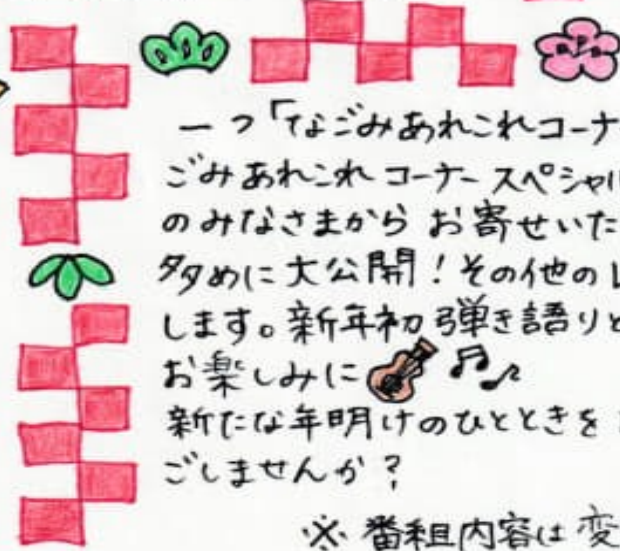 一つ「なごみあれこれコーナー
ごみあれこれコーナースペシャル
のみなさまから お寄せいた
多めに大公開!その他の
します。新年初弾き語りと
お楽しみに
新たな年明けのひとときを
ごしませんか?
※ 番組内容は変